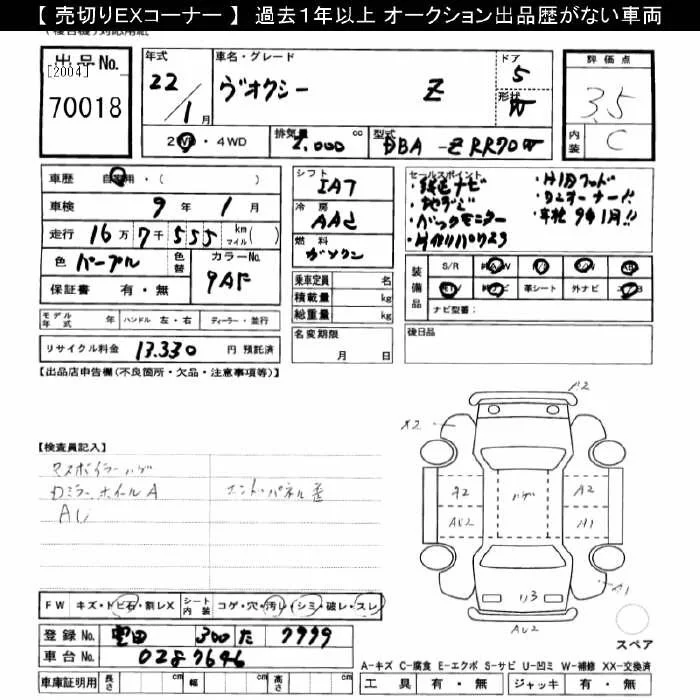 【 売切りEXコーナー 】 過去１年以上 オークション出品歴がない車両
出品No.
[2004]
70018
年式
22/1月
車名・グレード
ヴオクシー Z
ドア
5
形状
W
評価点
3.5
内装
C
2WD・4WD
排気量 2,000 cc
型式 DBA-ZRR70W
車歴 自家用・( )
車検 9年 1月
走行 16万7千555 km マイル( )
色 パープル
色替
カラーNo. 9AF
保証書 有・無
シフト
IAT
冷房
AAC
燃料
ガソリン
乗車定員 名
積載量 kg
総重量 kg
名変期限
月 日
セールスポイント
・純正ナビ
・地デジ
・バックモニター
・HIDフッド
・1オーナー!!
・車検9年1月!!
装備品
S/R
P/S
P/W
革シート
外ナビ
ナビ型番:
後日品
モデル年式 年
ハンドル 左・右
ディーラー・並行
リサイクル料金 13.330 円 預託済
【出品店申告欄(不良箇所・欠品・注意事項等)】
【検査員記入】
Dミラー、ホイールA
エンド・パネル歪
AU
X2
A2
A2
ハゲ
AU2
A1
A1
U3
AU2
スペア
FW キズ・トビ石・割レX
シート内装 コゲ・穴・汚レ・シミ・破レ・スレ
登録No. 豊田 300 た 7999
車台No. 0287646
車庫証明用 長さ cm 幅 cm 高さ cm
A-キズ C-腐食 E-エクボ S-サビ U-凹ミ W-補修 XX-交換済
工具 有・無 ジャッキ 有・無